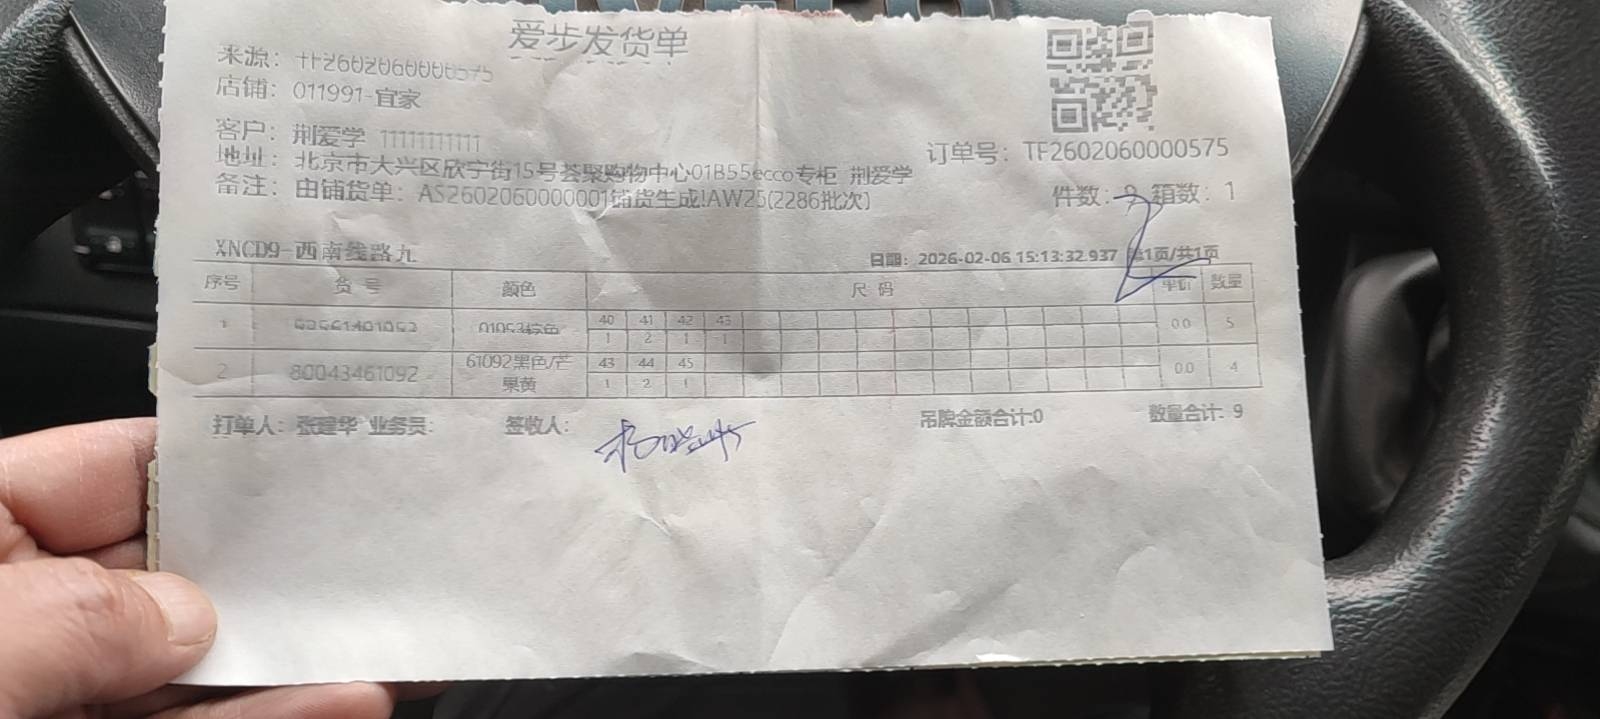 爱步发货单
来源：TF2602060000575
店铺：011991-宜家
客户：荆爱学 11111111111
订单号：TF2602060000575
地址：北京市大兴区欣宁街15号荟聚购物中心01B55ecco专柜 荆爱学
件数： 箱数：1
备注：由铺货单：AS2602060000001铺货生成!AW25(2286批次)
XNCD9-西南线路九
日期：2026-02-06 15:13:32.937 第1页/共1页
序号 货号 颜色 尺码 单价 数量
40 41 42 43
1 01053棕色 0.0 5
1 2 1 1
43 44 45
2 80043461092 61092黑色/芒果黄 0.0 4
1 2 1
打单人：张建华 业务员： 签收人： 吊牌金额合计:0 数量合计: 9